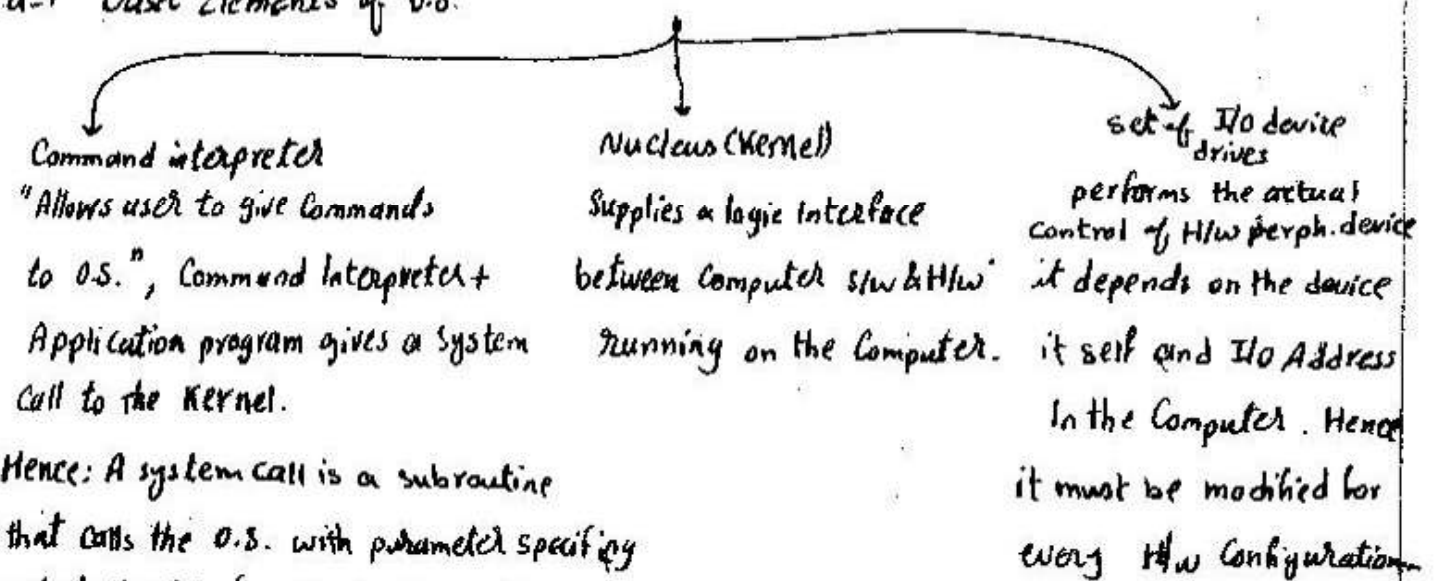 Basic Elements of O.S.
Command interpreter
"Allows user to give Commands
to O.S.", Command Interpreter +
Application program gives a System
Call to the Kernel.
Hence: A system call is a subroutine
that calls the O.S. with parameter specifiy
Nucleus (Kernel)
Supplies a logic Interface
between Computer S/w & H/w
running on the Computer.
set of I/O device
drives
performs the actual
control of H/w perph. device
it depends on the device
it self and I/o Address
In the Computer. Hence
it must be modified for
every H/w Configuration